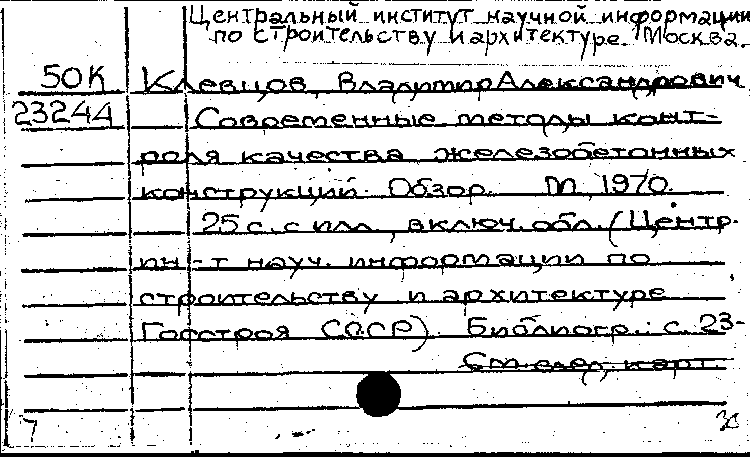 Центральный институт научной информации
по строительству и архитектуре. Москва.
50К Клевцов, Владимир Александрович
23244 Современные методы конт-
роля качества железобетонных
конструкций. Обзор. М., 1970.
25 с. с илл., включ. обл. (Центр.
ин-т науч. информации по
строительству и архитектуре
Госстроя СССР). Библиогр.: с. 23-
См. след. карт.
7